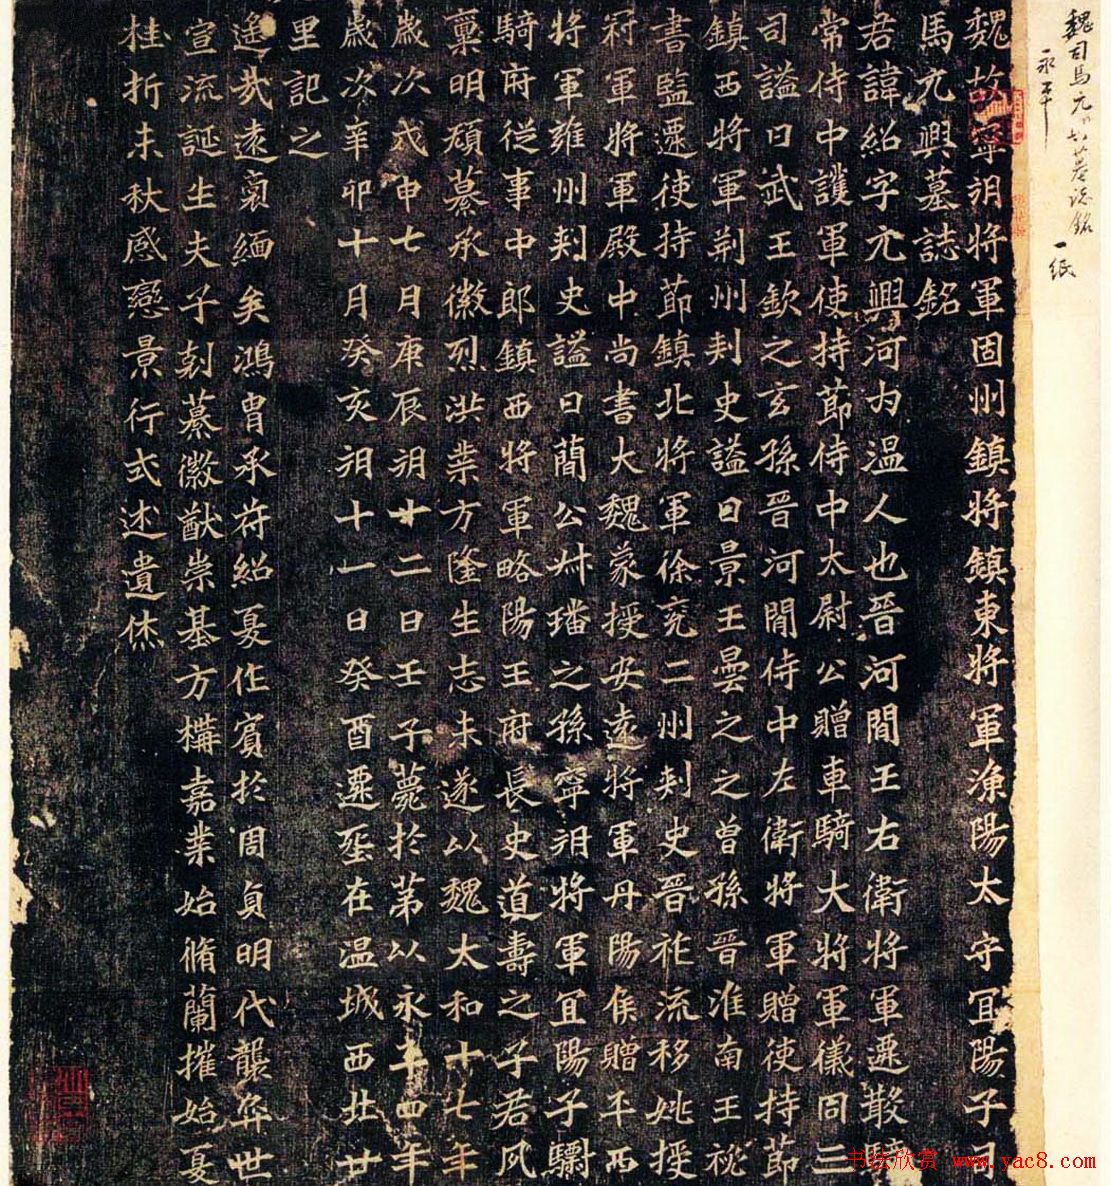 魏司馬元興墓誌銘 一紙
永平
魏故寧朔將軍固州鎮將鎮東將軍漁陽太守宜陽子司
馬元興墓誌銘
君諱紹字元興河內溫人也晉河間王右衛將軍遷散騎
常侍中護軍使持節侍中太尉公贈車騎大將軍儀同三
司謚曰武王欽之玄孫晉河間侍中左衛將軍贈使持節
鎮西將軍荊州刺史謚曰景王曇之之曾孫晉淮南王秘
書監遷使持節鎮北將軍徐兗二州刺史晉祚流移姚授
冠軍將軍殿中尚書大魏蒙授安遠將軍丹陽侯贈平西
將軍雍州刺史謚曰簡公叔璠之孫寧朔將軍宜陽子驃
騎府從事中郎鎮西將軍略陽王府長史道壽之子君夙
稟明頎纂承徽烈洪業方隆生志未遂以魏太和十七年
歲次戌申七月庚辰朔十二日壬子薨於第以永平四年
歲次辛卯十月癸亥朔十一日癸酉遷塟在溫城西北廿
里記之
遙哉遠裔緬矣鴻冑承苻紹夏作賓於周貞明代襲弈世
宣流誕生夫子剋纂徽猷崇基方構嘉業始脩蘭摧始夏
桂折未秋感戀景行式述遺休
书法欣赏 www.yac8.com